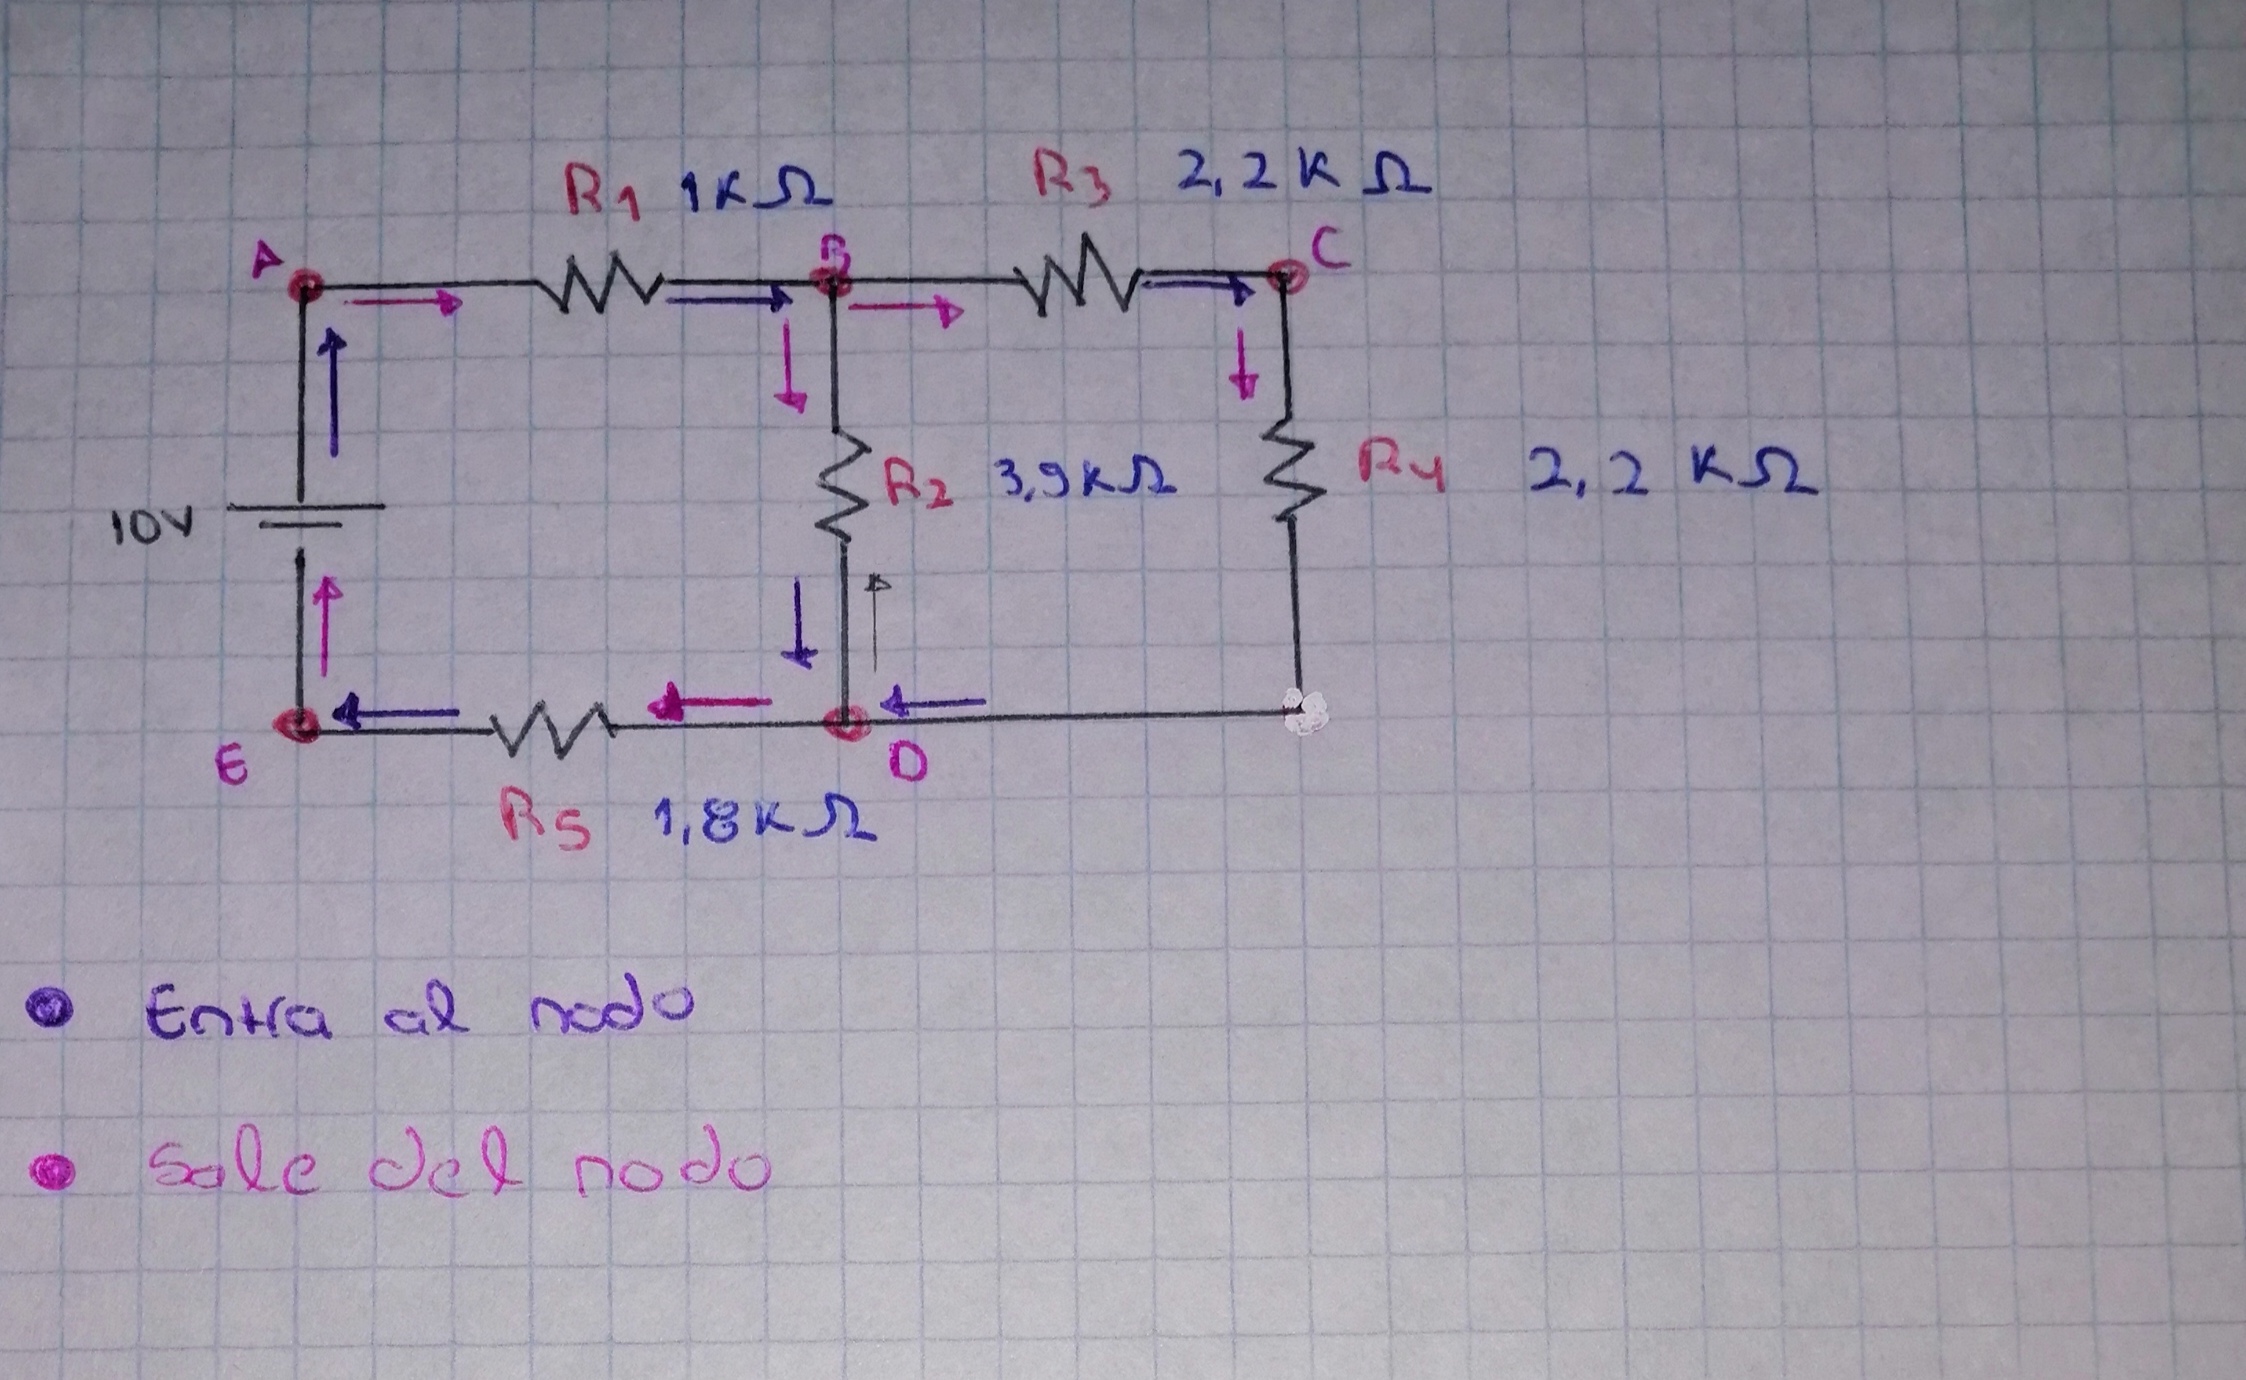 R1 1KΩ
R3 2,2KΩ
A
B
C
10V
R2 3,9KΩ
R4 2,2 KΩ
E
D
R5 1,8KΩ
Entra al nodo
Sale del nodo